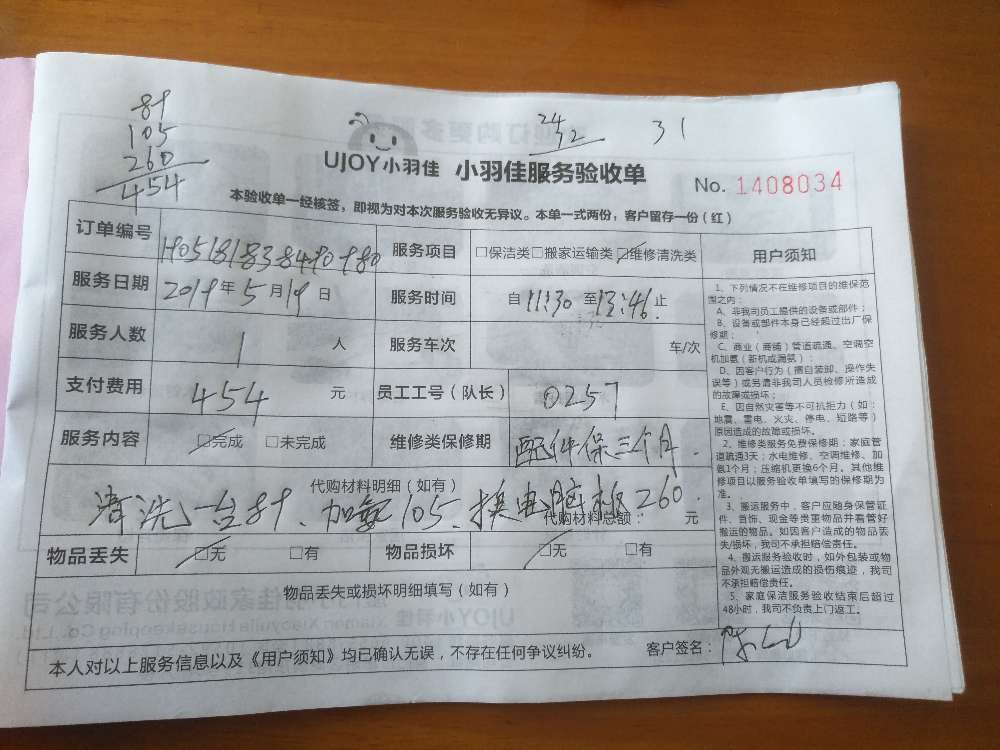 89
105
260
454
24
32
31
UJOY小羽佳 小羽佳服务验收单
No. 1408034
本验收单一经核签，即视为对本次服务验收无异议。本单一式两份，客户留存一份（红）
订单编号
服务项目 □保洁类□搬家运输类□维修清洗类
用户须知
服务日期 2019年5月19日
服务时间 自11:30至13:46止
服务人数 1人
服务车次 车/次
支付费用 454元
员工工号（队长） 0257
服务内容 □完成 □未完成
维修类保修期 配件保三个月.
代购材料明细（如有）
清洗一台89、加氨105、换电脑板260.
代购材料总额： 元
物品丢失 □无 □有
物品损坏 □无 □有
物品丢失或损坏明细填写（如有）
1、下列情况不在维修项目的维保范
围之内：
A、非我司员工提供的设备或部件；
B、设备或部件本身已经超过出厂保
修期；
C、商业（商铺）管道疏通、空调空
机加氨（新机或漏氨）；
D、因客户行为（擅自装卸、操作失
误等）或另请非我司人员检修所造成
的故障或损坏；
E、因自然灾害等不可抗拒力（如：
地震、雷电、火灾、停电、短路等）
原因造成的故障或损坏。
2、维修类服务免费保修期：家庭管
道疏通3天；水电维修、空调维修、加
氨1个月；压缩机更换6个月。其他维
修项目以服务验收单填写的保修期为
准。
3、搬运服务中，客户应随身保管证
件、首饰、现金等贵重物品并看管好
搬运的物品。如因客户造成的物品丢
失/损坏，我司不承担赔偿责任。
4、搬运服务验收时，如外包装或物
品外观无搬运造成的损伤痕迹，我司
不承担赔偿责任。
5、家庭保洁服务验收结束后超过
48小时，我司不负责上门返工。
本人对以上服务信息以及《用户须知》均已确认无误，不存在任何争议纠纷。
客户签名：